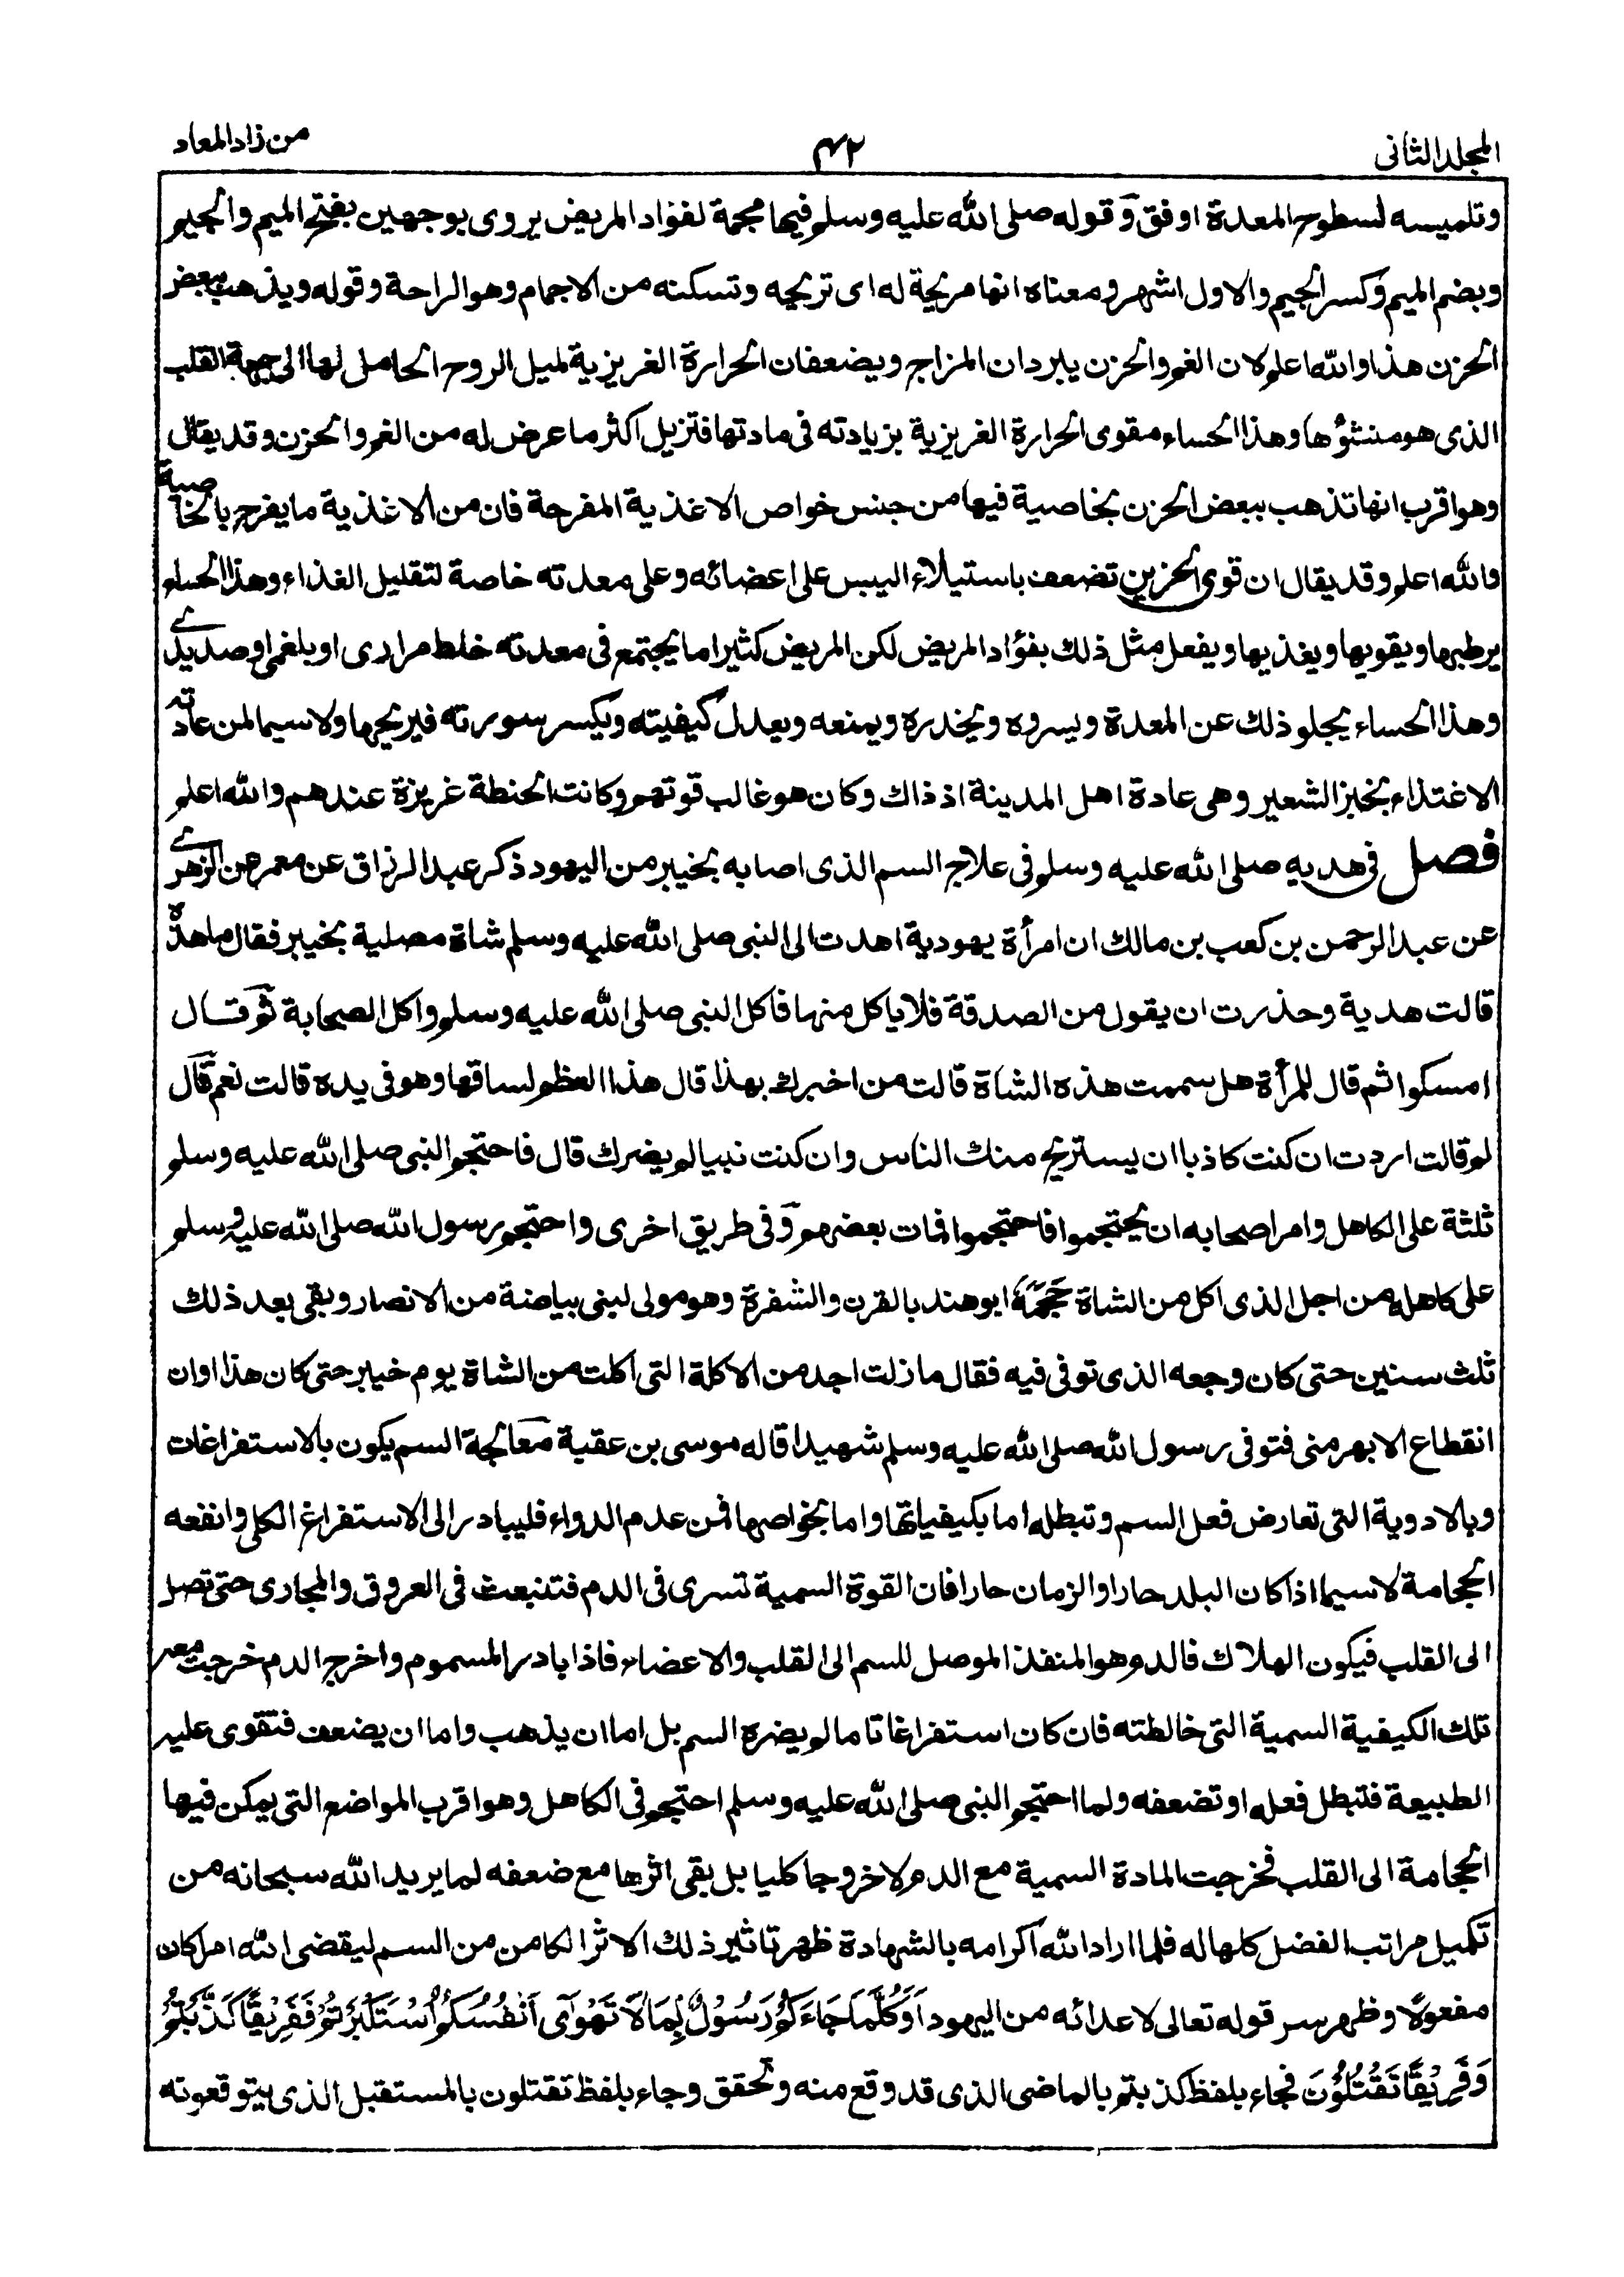 المجلد الثانى
٤٢
من زاد المعاد
وتلميسه لسطوح المعدة اوفق وقوله صلى الله عليه وسلم فيها مجمة لفؤاد المريض يروى بوجهين بفتح الميم والجيم
وبضم الميم وكسر الجيم والاول اشهر ومعناه انها مريحة له اى تريحه وتسكنه من الاجمام وهو الراحة وقوله ويذهب ببعض
الحزن هذا والله اعلم لان الغم والحزن يبردان المزاج ويضعفان الحرارة الغريزية لميل الروح الحامل لها الى جهة القلب
الذى هو منشؤها وهذا الحساء مقوى الحرارة الغريزية بزيادته فى مادتها فتزيل اكثر ما عرض له من الغم والحزن وقد يقال
وهو اقرب انها تذهب ببعض الحزن بخاصية فيها من جنس خواص الاغذية المفرحة فان من الاغذية ما يفرح بالخاصية
والله اعلم وقد يقال ان قوى الحزين تضعف باستيلاء اليبس على اعضائه وعلى معدته خاصة لتقليل الغذاء وهذا الحساء
يرطبها ويقويها ويغذيها ويفعل مثل ذلك بفؤاد المريض لكن المريض كثيرا ما يجتمع فى معدته خلط مرارى او بلغمى او صديدى
وهذا الحساء يجلو ذلك عن المعدة ويسروه ويخدره ويمنعه ويعدل كيفيته ويكسر سورته فيريحها ولاسيما لمن عادته
الاغتذاء بخبز الشعير وهى عادة اهل المدينة اذ ذاك وكان هو غالب قوتهم وكانت الحنطة غريزة عندهم والله اعلم
فصل فى هديه صلى الله عليه وسلم فى علاج السم الذى اصابه بخيبر من اليهود ذكر عبد الرزاق عن معمر عن الزهرى
عن عبد الرحمن بن كعب بن مالك ان امرأة يهودية اهدت الى النبى صلى الله عليه وسلم شاة مصلية بخيبر فقال ما هذه
قالت هدية وحذرت ان يقول من الصدقة فلا ياكل منها فاكل النبى صلى الله عليه وسلم واكل الصحابة ثم قال
امسكوا ثم قال للمرأة هل سممت هذه الشاة قالت من اخبرك بهذا قال هذا العظم لساقها وهو فى يده قالت نعم قال
لم قالت اردت ان كنت كاذبا ان يستريح منك الناس وان كنت نبيا لم يضرك قال فاحتجم النبى صلى الله عليه وسلم
ثلثة على الكاهل وامر اصحابه ان يحتجموا فاحتجموا فمات بعضهم وفى طريق اخرى واحتجم رسول الله صلى الله عليه وسلم
على كاهله من اجل الذى اكل من الشاة حجمه ابو هند بالقرن والشفرة وهو مولى لبنى بياضة من الانصار وبقى بعد ذلك
ثلث سنين حتى كان وجعه الذى توفى فيه فقال ما زلت اجد من الاكلة التى اكلت من الشاة يوم خيبر حتى كان هذا اوان
انقطاع الابهر منى فتوفى رسول الله صلى الله عليه وسلم شهيدا قاله موسى بن عقبة معالجة السم يكون بالاستفراغات
وبالادوية التى تعارض فعل السم وتبطله اما بكيفياتها واما بخواصها فمن عدم الدواء فليبادر الى الاستفراغ الكلى وانفعه
الحجامة لاسيما اذا كان البلد حارا والزمان حارا فان القوة السمية تسرى فى الدم فتنبعث فى العروق والمجارى حتى تصل
الى القلب فيكون الهلاك فالدم هو المنفذ الموصل للسم الى القلب والاعضاء فاذا بادر المسموم واخرج الدم خرجت معه
تلك الكيفية السمية التى خالطته فان كان استفراغا تاما لم يضره السم بل اما ان يذهب واما ان يضعف فتقوى عليه
الطبيعة فتبطل فعله او تضعفه ولما احتجم النبى صلى الله عليه وسلم احتجم فى الكاهل وهو اقرب المواضع التى يمكن فيها
الحجامة الى القلب فخرجت المادة السمية مع الدم لاخروجا كليا بل بقى اثرها مع ضعفه لما يريد الله سبحانه من
تكميل مراتب الفضل كلها له فلما اراد الله اكرامه بالشهادة ظهر تاثير ذلك الاثر الكامن من السم ليقضى الله امرا كان
مفعولا وظهر سر قوله تعالى لاعدائه من اليهود اَوَكُلَّمَا جَاءَكُمْ رَسُوْلٌ بِمَا لَا تَهْوٰٓى اَنْفُسُكُمُ اسْتَكْبَرْتُمْ فَفَرِيْقًا كَذَّبْتُمْ
وَفَرِيْقًا تَقْتُلُوْنَ فجاء بلفظ كذبتم بالماضى الذى قد وقع منه وتحقق وجاء بلفظ تقتلون بالمستقبل الذى يتوقعونه